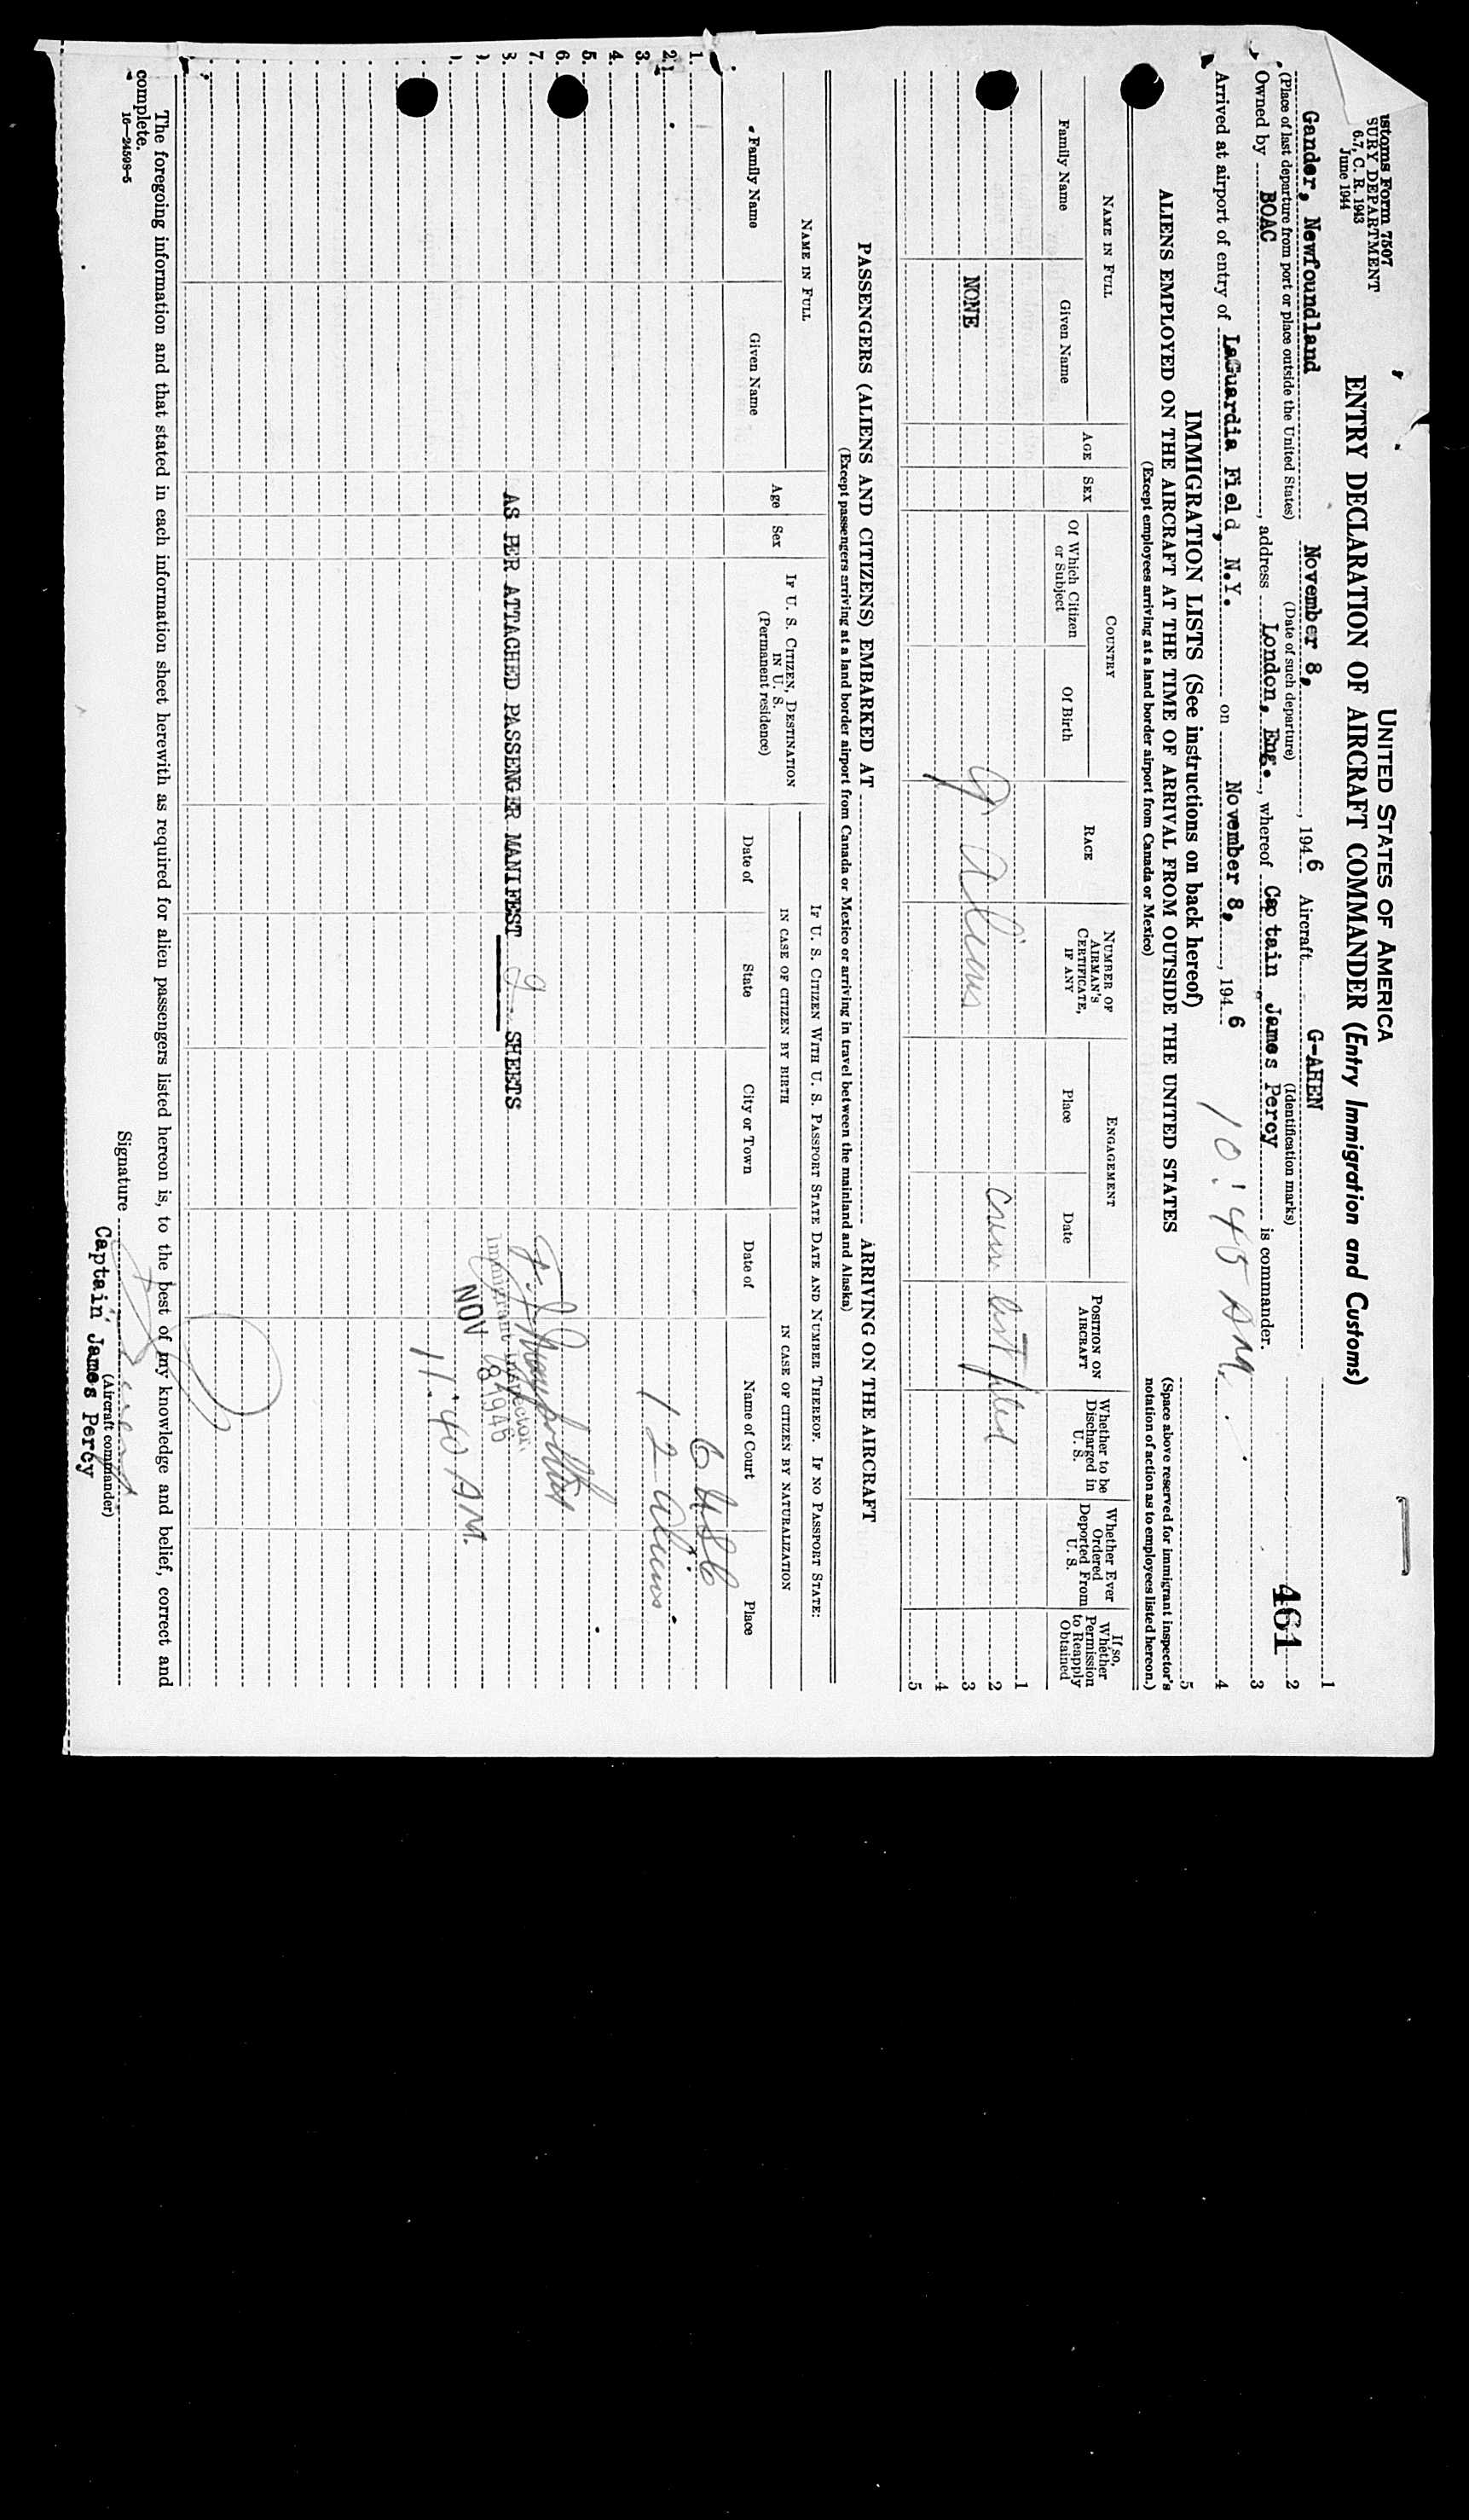 ustoms Form 7507
SURY DEPARTMENT
6.7, C. R. 1943
June 1944
UNITED STATES OF AMERICA
ENTRY DECLARATION OF AIRCRAFT COMMANDER (Entry Immigration and Customs)
Gander, Newfoundland November 8, 1946 Aircraft G-AHEN
(Place of last departure from port or place outside the United States) (Date of such departure) (Identification marks)
Owned by BOAC, address London, Eng., whereof Captain James Percy is commander.
Arrived at airport of entry of LaGuardia Field, N.Y. on November 8, 1946 10:45 AM.
1
2
461
3
4
5
IMMIGRATION LISTS (See instructions on back hereof)
(Space above reserved for immigrant inspector's notation of action as to employees listed hereon.)
ALIENS EMPLOYED ON THE AIRCRAFT AT THE TIME OF ARRIVAL FROM OUTSIDE THE UNITED STATES
(Except employees arriving at a land border airport from Canada or Mexico)
NAME IN FULL
Family Name
Given Name
AGE
SEX
COUNTRY
Of Which Citizen or Subject
Of Birth
RACE
NUMBER OF AIRMAN'S CERTIFICATE, IF ANY
ENGAGEMENT
Place
Date
POSITION ON AIRCRAFT
Whether to be Discharged in U. S.
Whether Ever Ordered Deported From U. S.
If so, Whether Permission to Reapply Obtained
1
2
3
4
5
NONE
9 Aliens
Crew list filed
PASSENGERS (ALIENS AND CITIZENS) EMBARKED AT ARRIVING ON THE AIRCRAFT
(Except passengers arriving at a land border airport from Canada or Mexico or arriving in travel between the mainland and Alaska)
NAME IN FULL
Family Name
Given Name
Age
Sex
IF U. S. CITIZEN, DESTINATION IN U. S.
(Permanent residence)
IF U. S. CITIZEN WITH U. S. PASSPORT STATE DATE AND NUMBER THEREOF. IF NO PASSPORT STATE:
IN CASE OF CITIZEN BY BIRTH
Date of
State
City or Town
IN CASE OF CITIZEN BY NATURALIZATION
Date of
Name of Court
Place
1.
2.
3.
4.
5.
6.
7.
8.
6 USC
12 Aliens
AS PER ATTACHED PASSENGER MANIFEST 2 SHEETS
Immigrant Inspector
NOV 8 1946
11:40 AM.
The foregoing information and that stated in each information sheet herewith as required for alien passengers listed hereon is, to the best of my knowledge and belief, correct and
complete.
16—24598-5
Signature
(Aircraft commander)
Captain James Percy